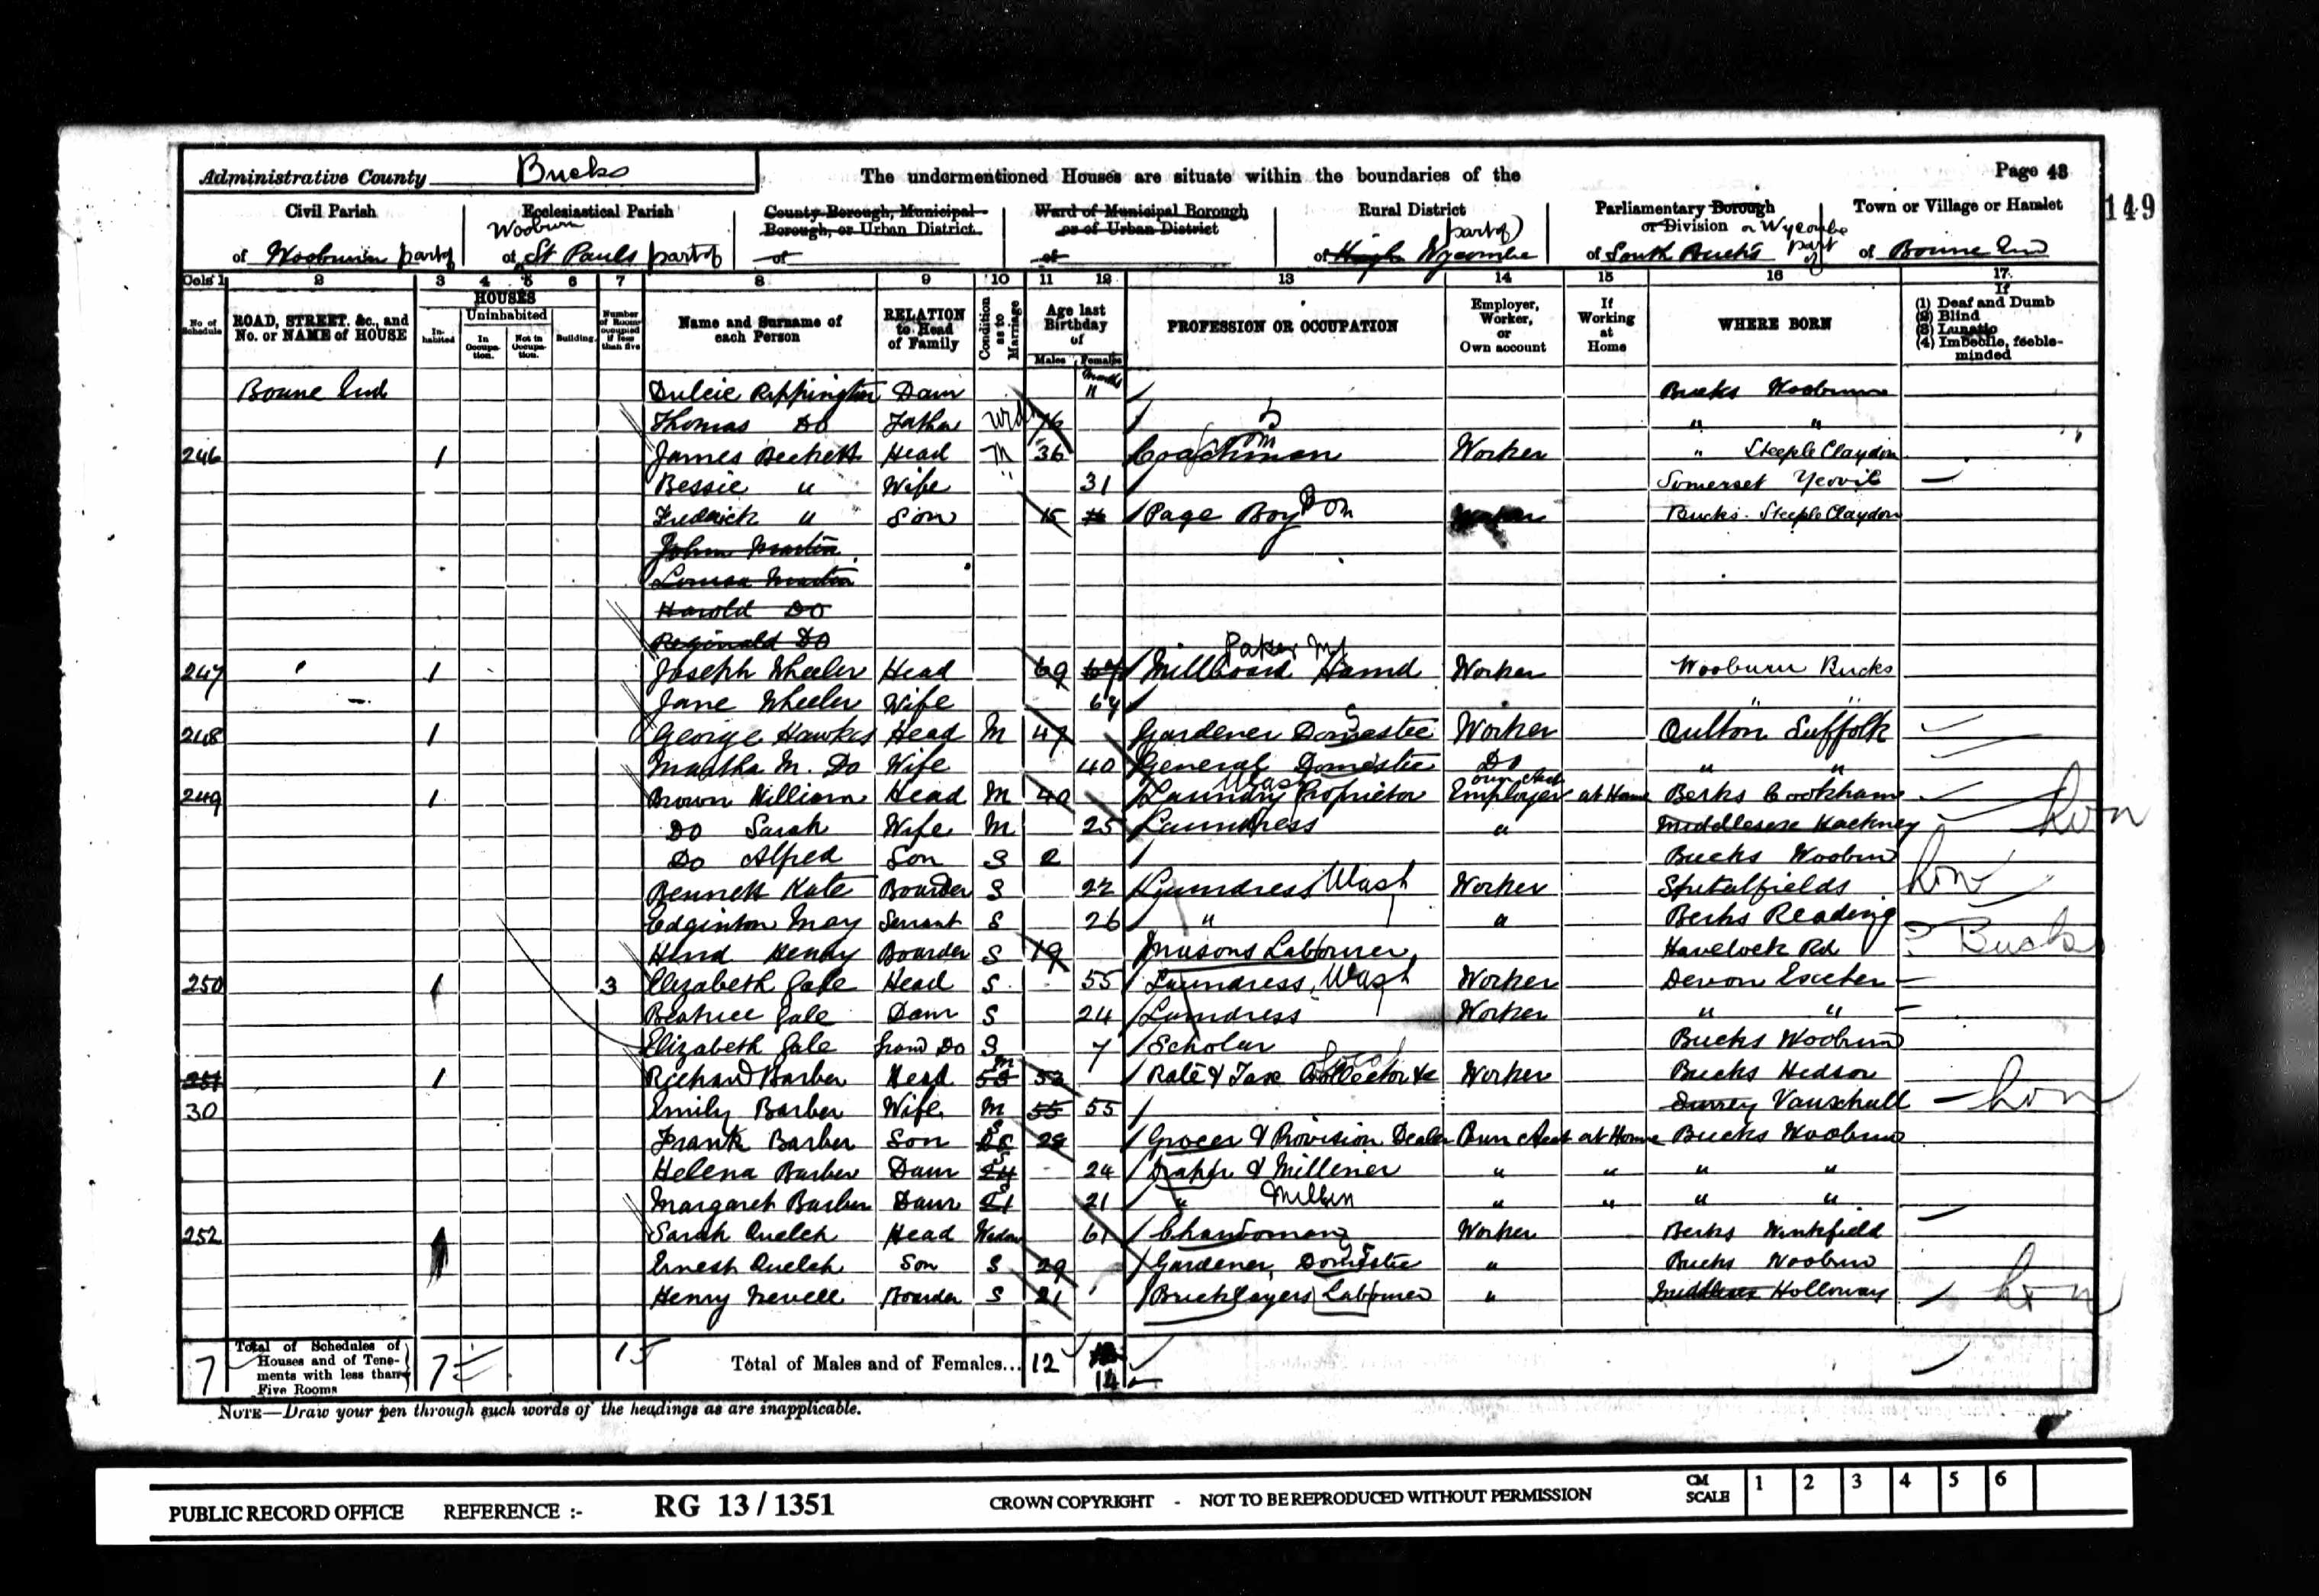 Administrative County Bucks
The undermentioned Houses are situate within the boundaries of the
Page 43
149
Civil Parish
of Wooburn part of
Ecclesiastical Parish
Wooburn
of St Pauls part of
County Borough, Municipal Borough, or Urban District
of
Ward of Municipal Borough or of Urban District
of
Rural District
part of
of High Wycombe
Parliamentary Borough or Division or Wycombe
of South Bucks part of
Town or Village or Hamlet
of Bourne End
Cols 1 2 3 4 5 6 7 8 9 10 11 12 13 14 15 16 17
No. of Schedule
ROAD, STREET, &c., and No. or NAME of HOUSE
HOUSES
Inhabited
Uninhabited
In Occupation.
Not in Occupation.
Building.
Number of Rooms occupied if less than five
Name and Surname of each Person
RELATION to Head of Family
Condition as to Marriage
Age last Birthday of
Males Females
PROFESSION OR OCCUPATION
Employer, Worker, or Own account
If Working at Home
WHERE BORN
If
(1) Deaf and Dumb
(2) Blind
(3) Lunatic
(4) Imbecile, feeble-minded
Bourne End Dulcie Rippington Daur Months 11 Bucks Wooburn
Thomas Do Father Wdr 76 " "
246 1 James Beckett Head M 36 Coachman Worker " Steeple Claydon
Bessie " Wife " 31 Somerset Yeovil
Fredrick " Son 15 Page Boy Dom Bucks Steeple Claydon
John Martin
Louisa Martin
Harold Do
Reginald Do
Paper Mf
247 1 Joseph Wheeler Head 69 67 Millboard Hand Worker Wooburn Bucks
Jane Wheeler Wife 64 " "
248 1 George Hawkes Head M 47 Gardener Domestic Worker Oulton Suffolk
Martha M. Do Wife 40 General Domestic Do " "
Wash own acct
249 1 Brown William Head M 40 Laundry Proprietor Employer at Home Berks Cookham
Do Sarah Wife M 25 Laundress " Middlesex Hackney Lon
Do Alfred Son S 2 Bucks Wooburn
Bennett Kate Boarder S 22 Laundress Wash Worker Spitalfields Lon
Edginton May Servant S 26 " " Berks Reading
Hind Henry Boarder S 19 Masons Labourer Havelock Rd ? Bucks
250 1 3 Elizabeth Gale Head S 55 Laundress Wash Worker Devon Exeter
Beatrice Gale Daur S 24 Laundress Worker " "
Elizabeth Gale Grand Do S 7 Scholar Bucks Wooburn
251 1 Richard Barber Head M 53 53 Rate & Tax Collector &c Worker Bucks Hedsor
30 Emily Barber Wife M 55 55 Surrey Vauxhall Lon
Frank Barber Son S 28 Grocer & Provision Dealer Own acct at Home Bucks Wooburn
Helena Barber Daur S 24 24 Draper & Milliner " " " "
Margaret Barber Daur S 21 21 " " " " "
252 Sarah Quelch Head Widow 61 Charwoman Worker Berks Winkfield
Ernest Quelch Son S 29 Gardener, Domestic " Bucks Wooburn
Henry Nevell Boarder S 21 Bricklayers Labourer " Middlesex Holloway Lon
7 Total of Schedules of Houses and of Tenements with less than Five Rooms 7 1 Total of Males and of Females... 12 14
NOTE—Draw your pen through such words of the headings as are inapplicable.
PUBLIC RECORD OFFICE REFERENCE :- RG 13 / 1351 CROWN COPYRIGHT - NOT TO BE REPRODUCED WITHOUT PERMISSION CM SCALE 1 2 3 4 5 6